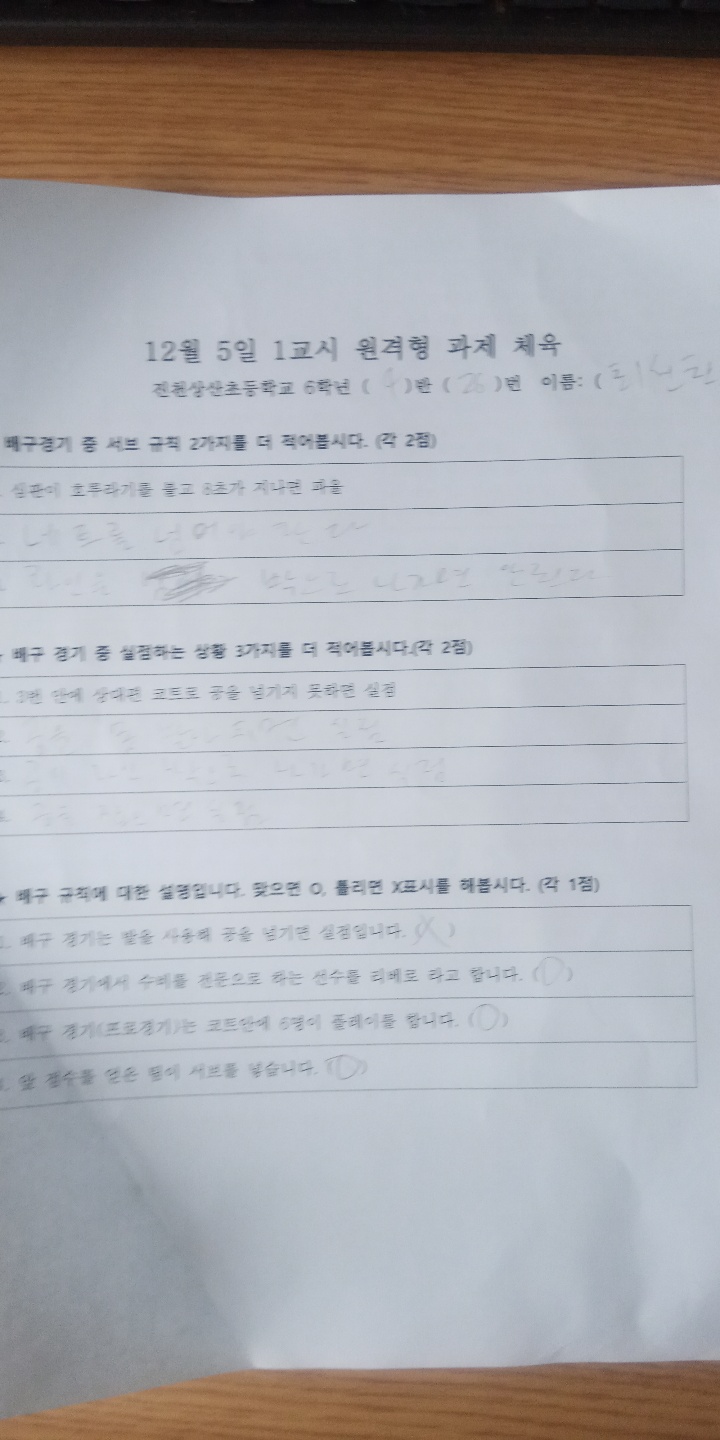 12월 5일 1교시 원격형 과제 체육
진천상산초등학교 6학년 ( 4 )반 ( 26 )번 이름: (
배구경기 중 서브 규칙 2가지를 더 적어봅시다. (각 2점)
심판이 호루라기를 불고 8초가 지나면 파울
네트를 넘어야 한다
라인을 밖으로 나가면 안된다
배구 경기 중 실점하는 상황 3가지를 더 적어봅시다.(각 2점)
1. 3번 안에 상대편 코트로 공을 넘기지 못하면 실점
2. 실점
3. 나가면 실점
4. 실점
★ 배구 규칙에 대한 설명입니다. 맞으면 O, 틀리면 X표시를 해봅시다. (각 1점)
1. 배구 경기는 발을 사용해 공을 넘기면 실점입니다. (X)
2. 배구 경기에서 수비를 전문으로 하는 선수를 리베로 라고 합니다. (O)
3. 배구 경기(프로경기)는 코트안에 6명이 플레이를 합니다. (O)
4. 앞 점수를 얻은 팀이 서브를 넣습니다. (O)